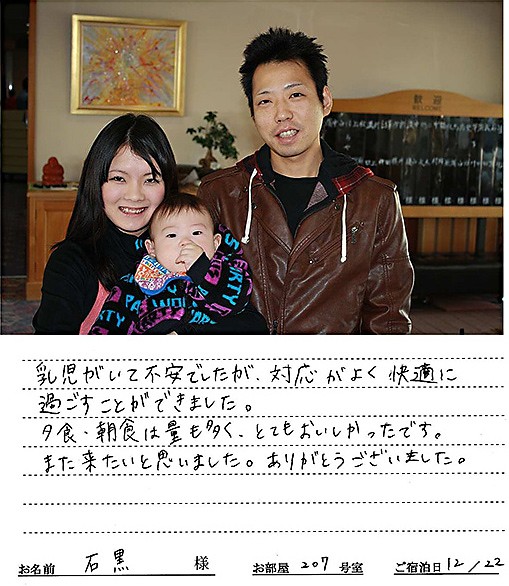 歓迎
WELCOME
乳児がいて不安でしたが、対応がよく快適に
過ごすことができました。
夕食・朝食は量も多く、とてもおいしかったです。
また来たいと思いました。ありがとうございました。
お名前 石黒 様 お部屋 207 号室 ご宿泊日 12/22